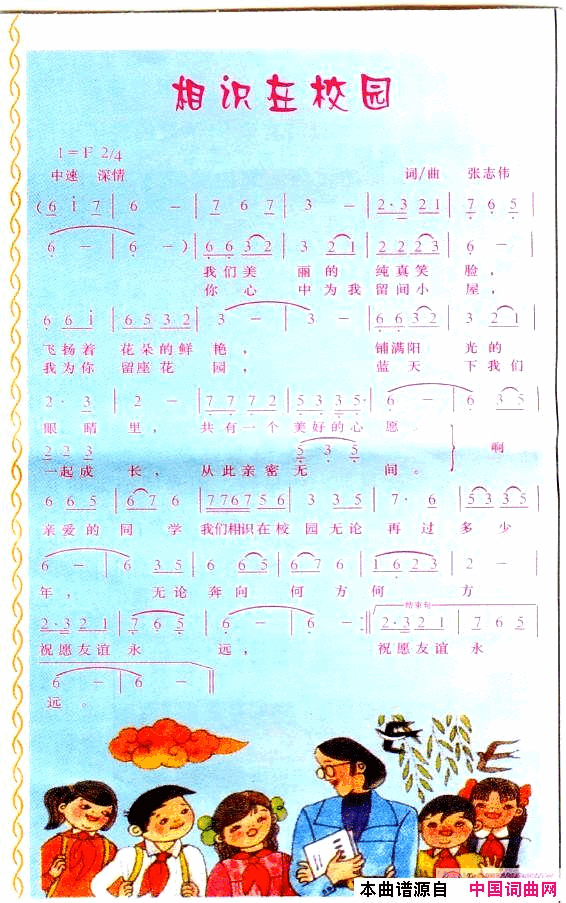 相识在校园
1=F 2/4
中速 深情 词/曲 张志伟
(6 i 7 | 6 - | 7 6 7 | 3 - | 2·3 2 1 | 7 6 5 |
6 - | 6 - ) | 6 6 3 2 | 3 2 1 | 2 2 2 3 | 6 - |
我们美 丽的 纯真笑 脸，
你心 中为我 留间小 屋，
6 6 i | 6 5 3 2 | 3 - | 3 - | 6 6 3 2 | 3 2 1 |
飞扬着 花朵的鲜 艳， 铺满阳 光的
我为你 留座花 园， 蓝天 下我们
2· 3 | 2 - | 7 7 7 2 | 5 3 3 5· | 6 - | 6 3 5 |
眼睛里， 共有一个 美好的心 愿。 啊
2 2 3 5 3 5
一起成 长， 从此亲密无 间。
6 6 5 | 6 7 6 | 7 7 6 7 5 6 | 3 3 5 | 7· 6 | 5 3 3 5 |
亲爱的 同 学 我们相识在校 园无论 再过多少
6 - | 6 3 5 | 6 6 | 6 7 | 1 6 2 3 | 2 - |
年， 无论 奔向 何 方何 方
2·3 2 1 | 7 6 5 | 6 - | 6 - :| 结束句 2·3 2 1 | 7 6 5 |
祝愿友谊 永 远， 祝愿友谊 永
6 - | 6 - ||
远。
本曲谱源自 中国词曲网